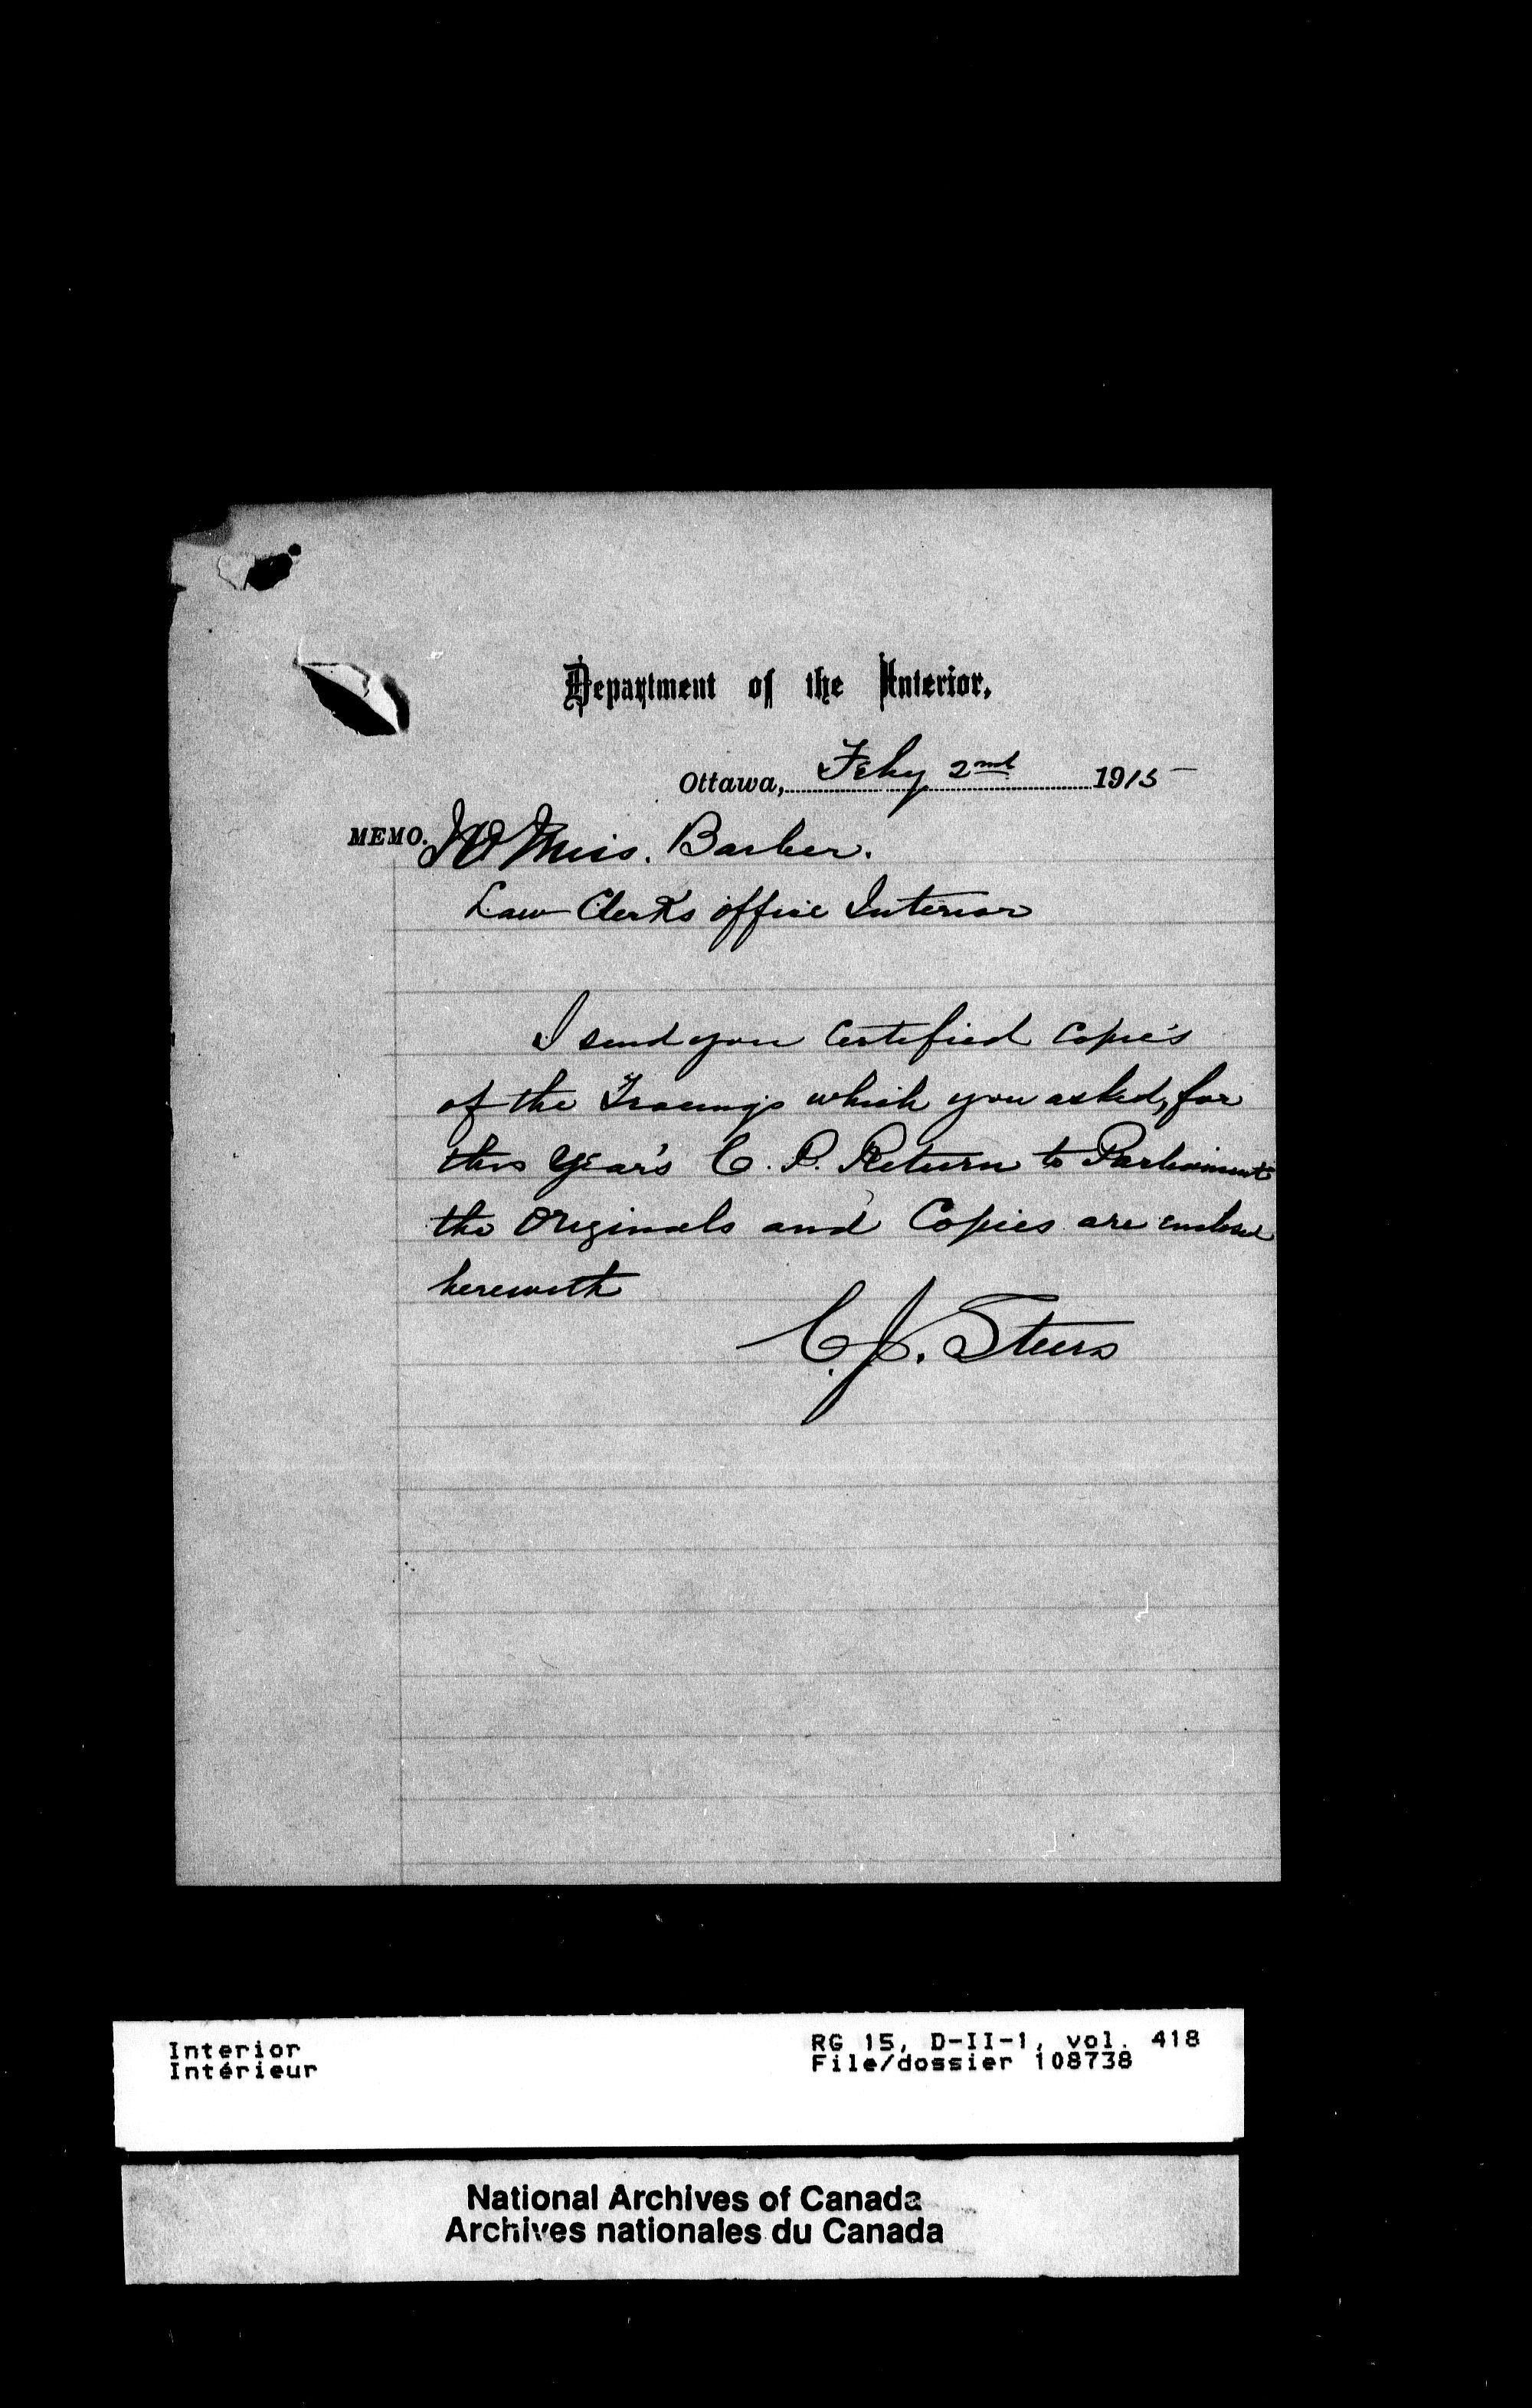 Department of the Interior.
Ottawa, Feby 2nd 1915
MEMO. To Miss. Barber.
Law Clerks office Interior
I send you Certified Copie's
of the Tracings which you asked, for
this Year's C. P. Return to Parliament
the Originals and Copies are enclosed
herewith
C. J. Steers
Interior
Intérieur
RG 15, D-II-1, vol. 418
File/dossier 108738
National Archives of Canada
Archives nationales du Canada